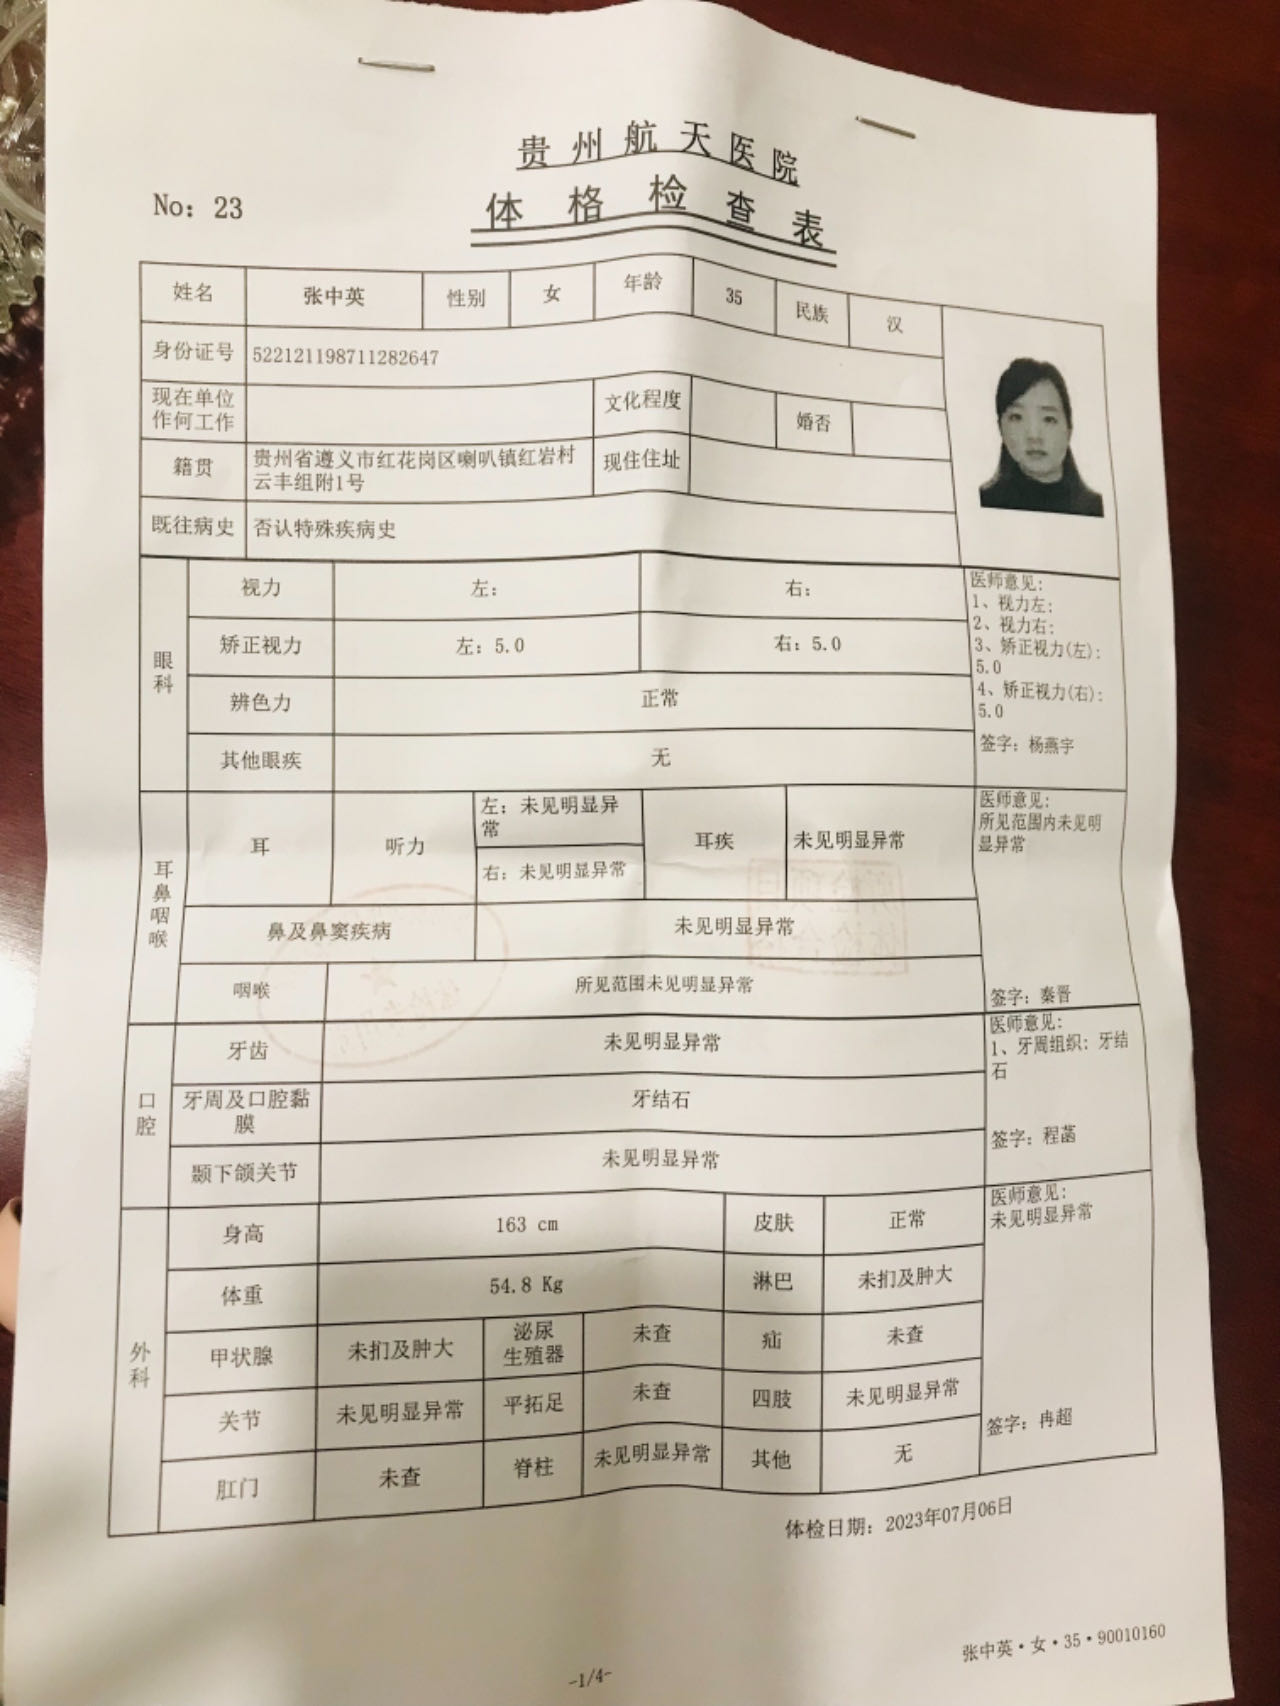 贵州航天医院
体格检查表
No: 23
姓名 张中英 性别 女 年龄 35 民族 汉
身份证号 522121198711282647
现在单位
作何工作
文化程度 婚否
籍贯 贵州省遵义市红花岗区喇叭镇红岩村
云丰组附1号
现住住址
既往病史 否认特殊疾病史
眼科
视力 左: 右:
矫正视力 左: 5.0 右: 5.0
辨色力 正常
其他眼疾 无
医师意见:
1、视力左:
2、视力右:
3、矫正视力(左):
5.0
4、矫正视力(右):
5.0
签字: 杨燕宇
耳鼻咽喉
耳 听力
左: 未见明显异
常
右: 未见明显异常
耳疾 未见明显异常
鼻及鼻窦疾病 未见明显异常
咽喉 所见范围未见明显异常
医师意见:
所见范围内未见明
显异常
签字: 秦晋
口腔
牙齿 未见明显异常
牙周及口腔黏
膜
牙结石
颞下颌关节 未见明显异常
医师意见:
1、牙周组织: 牙结
石
签字: 程菡
外科
身高 163 cm 皮肤 正常
体重 54.8 Kg 淋巴 未扪及肿大
甲状腺 未扪及肿大 泌尿
生殖器 未查 疝 未查
关节 未见明显异常 平拓足 未查 四肢 未见明显异常
肛门 未查 脊柱 未见明显异常 其他 无
医师意见:
未见明显异常
签字: 冉超
体检日期: 2023年07月06日
张中英·女·35·90010160
-1/4-